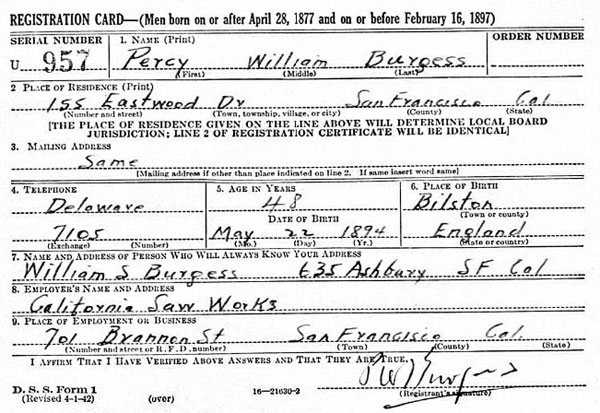 REGISTRATION CARD—(Men born on or after April 28, 1877 and on or before February 16, 1897)
SERIAL NUMBER 1. NAME (Print) ORDER NUMBER
U 957 Percy William Burgess
(First) (Middle) (Last)
2 PLACE OF RESIDENCE (Print)
155 Eastwood Dr San Francisco Cal
(Number and street) (Town, township, village, or city) (County) (State)
[THE PLACE OF RESIDENCE GIVEN ON THE LINE ABOVE WILL DETERMINE LOCAL BOARD
JURISDICTION; LINE 2 OF REGISTRATION CERTIFICATE WILL BE IDENTICAL]
3. MAILING ADDRESS
Same
[Mailing address if other than place indicated on line 2. If same insert word same]
4. TELEPHONE 5. AGE IN YEARS 6. PLACE OF BIRTH
Deloware 48 Bilston
DATE OF BIRTH (Town or county)
7105 May 22 1894 England
(Exchange) (Number) (Mo.) (Day) (Yr.) (State or country)
7. NAME AND ADDRESS OF PERSON WHO WILL ALWAYS KNOW YOUR ADDRESS
William S Burgess 635 Ashbury SF Cal
8. EMPLOYER'S NAME AND ADDRESS
California Saw Works
9. PLACE OF EMPLOYMENT OR BUSINESS
701 Brannon St San Francisco Cal.
(Number and street or R.F.D. number) (Town) (County) (State)
I AFFIRM THAT I HAVE VERIFIED ABOVE ANSWERS AND THAT THEY ARE TRUE.
D. S. S. Form 1
(Revised 4-1-42) (over) 16—21630-2 (Registrant's signature)